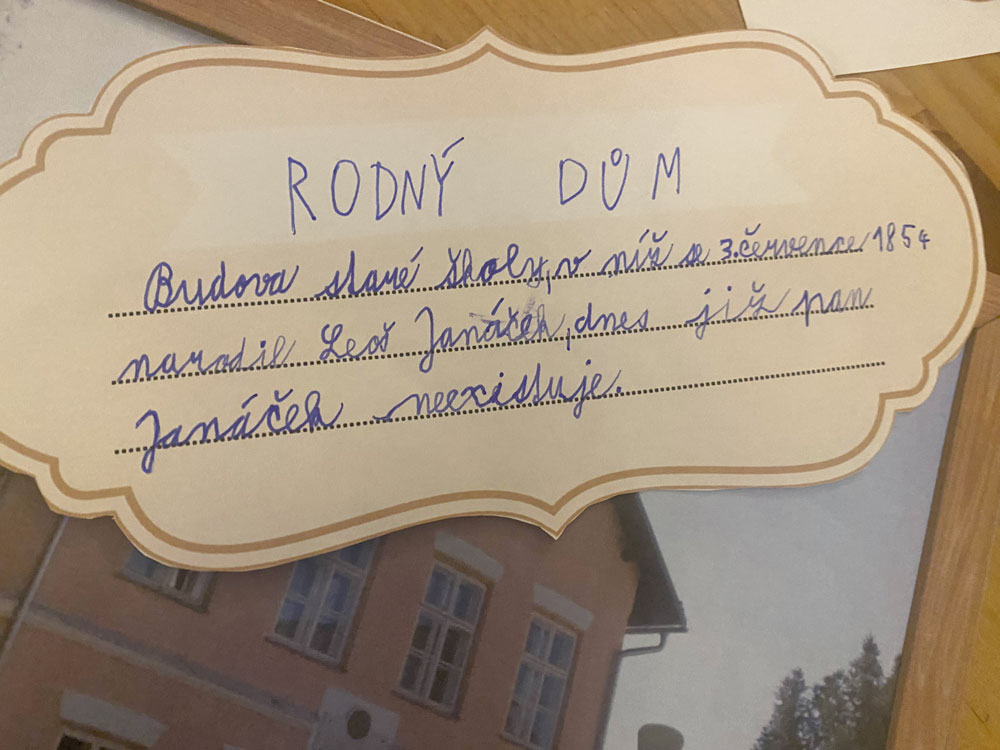 RODNÝ DŮM
Budova staré školy, v níž se 3. července 1854
narodil Leoš Janáček, dnes již pan
Janáček neexistuje.